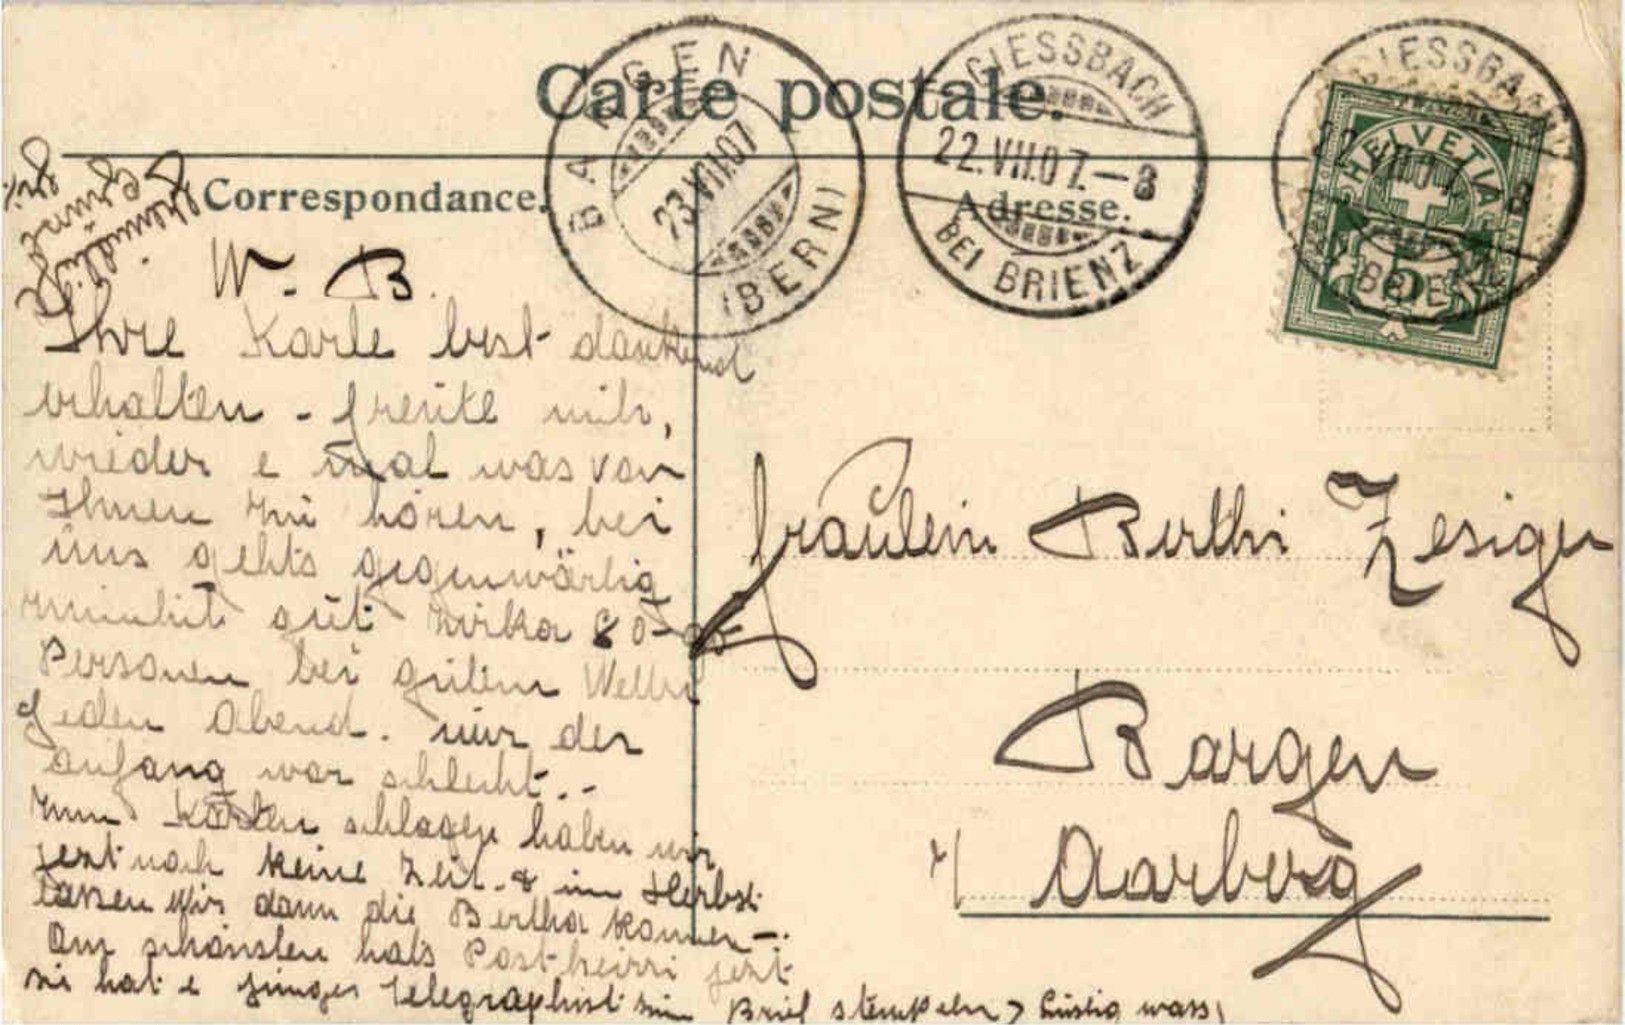 Carte postale.
BARGEN
23.VII.07
(BERN)
GIESSBACH
22.VII.07.-8
BEI BRIENZ
GIESSBACH
22.VII.07. 8
BRIENZ
HELVETIA
5
Correspondance.
Adresse.
W. B.
Ihre Karte best dankend
erhalten - freute mich,
wieder e mal was von
Ihnen zu hören, bei
uns gehts gegenwärtig
gut zirka 80-95
Personen bei gutem Wetter
jeden Abend. nur der
anfang war schlecht..-
zum Karten schlagen haben wir
jezt noch keine Zeit. & im Herbst
lassen wir dann die Bertha komen -.
Am schönsten hats Postheiri jezt
sie hat e junger Telegraphist zum Brief stempeln, lustig wass,
Fräulein Berthi Zesiger
Bargen
Aarberg